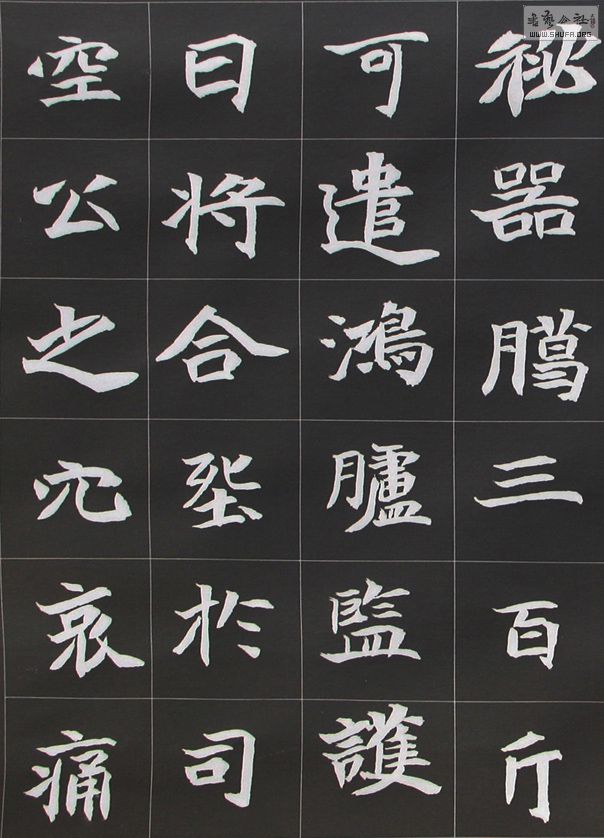 祕器臈三百斤
可遣鴻臚監護
日将合於司
空公之穴哀痛
書藝公社
WWW.SHUFA.ORG